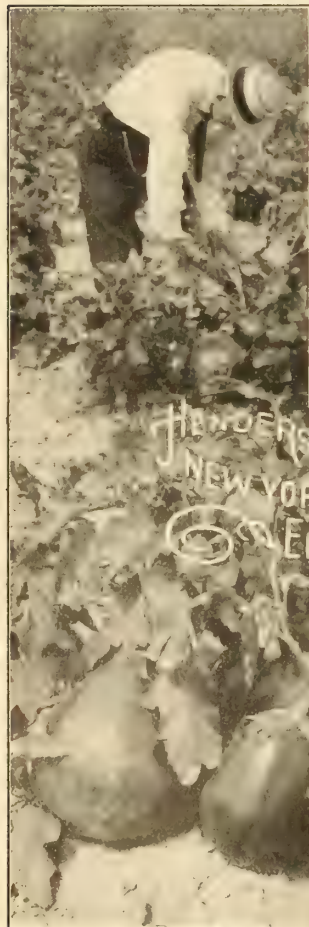 HENDERS
NEW YOR